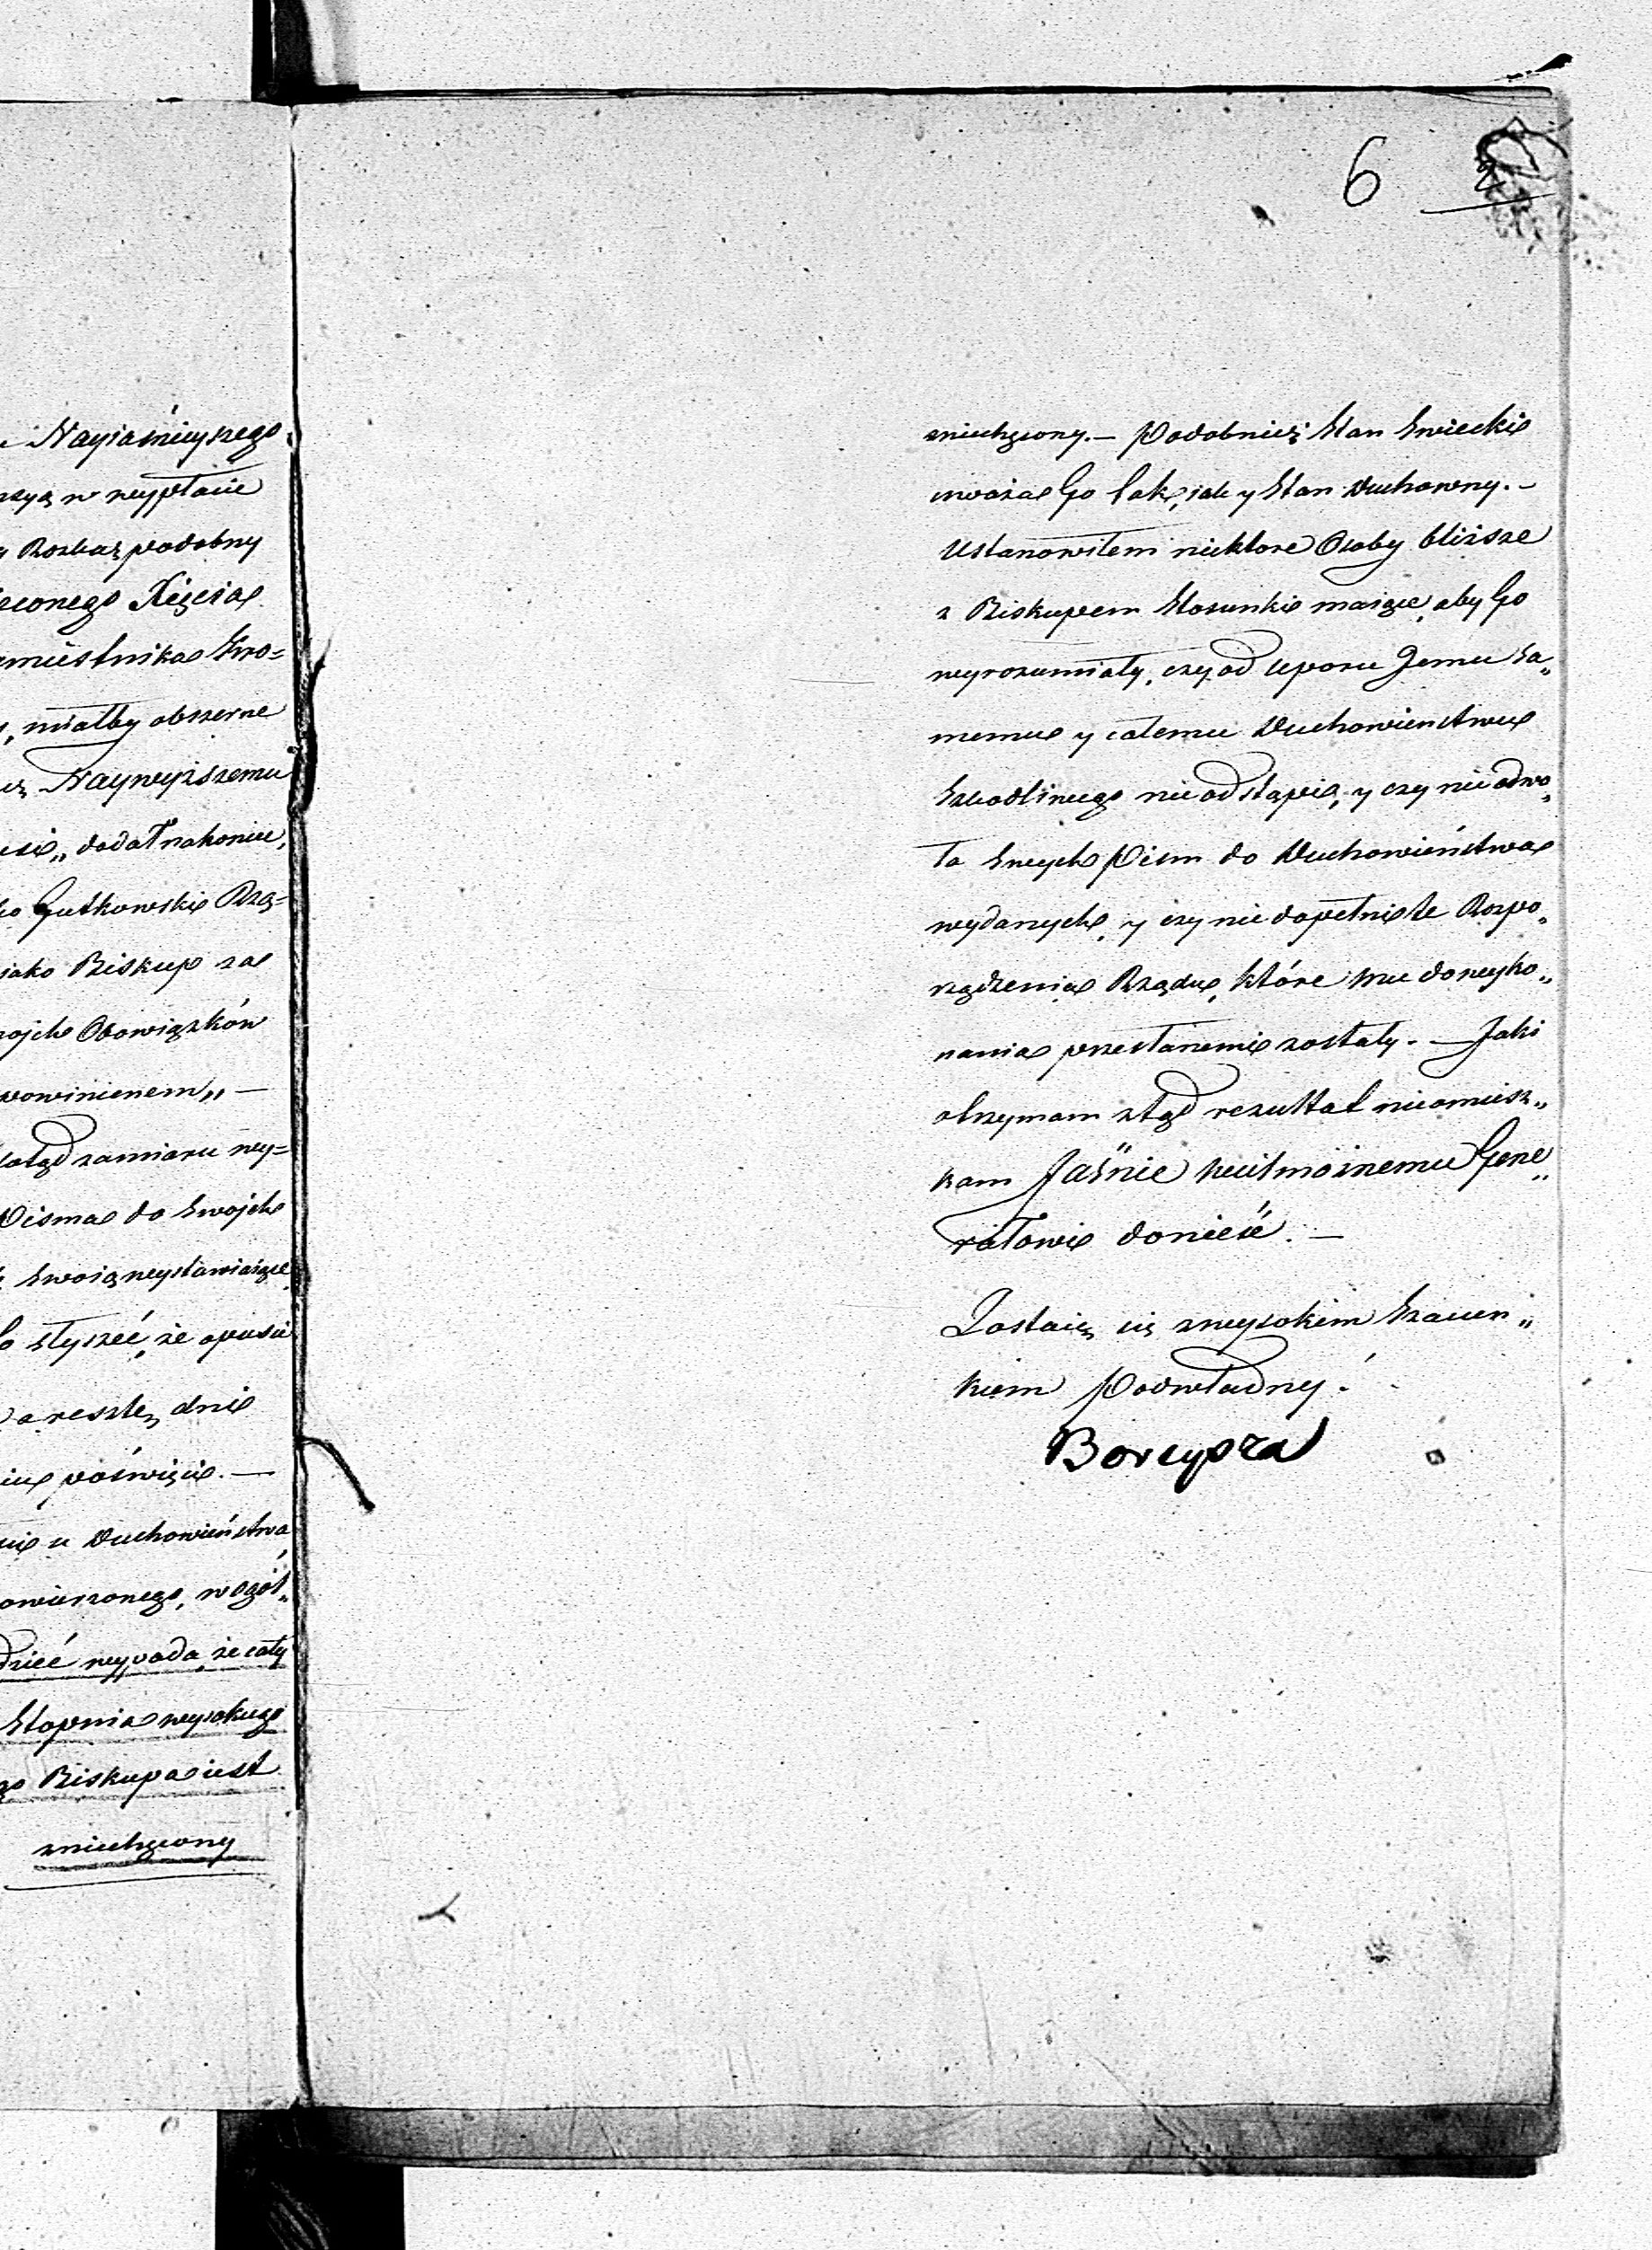 Nayiaśnieyszego
w wypłacie
Rozkaz podobny
Xięcia
Kró=
miałby obszerne
Naywyższemu
„ dodał nakoniec,
Gutkowski Rzą=
jako Biskup za
Obowiązków
powinienem„ —
zamiaru wy=
Pisma do Swojch
Swoią wystawiaiące
słyszeć, że opuści
a resztę dni
poświęci. —
u Duchowieństwa
w ogól„
wypada, że cały
Stopnia wysokiego
Biskupa iest
zniechęcony
6 2
zniechęcony. — Podobnież Stan Swiecki
uważa Go tak, iak y Stan Duchowny. —
Ustanowiłem niektore Osoby bliższe
z Biskupem Stosunki maiące, aby Go
wyrozumiały, czy od uporu Jemu Sa„
memu y całemu Duchowienstwu
Szkodliwego nieodstąpi, y czy nieodwo„
ła Swych Pism do Duchowieństwa
wydanych, y czy nie dopełni te Rozpo„
rządzenia Rządu, które mu do wyko„
nania przesłanemi zostały. — Jaki
otrzymam ztąd rezultat nieomiesz„
kam Jaśnie Wielmożnemu Gene„
rałowi donieść. —
Zostaię się z wysokim Szacun„
kiem Podwładny.
Borcysza